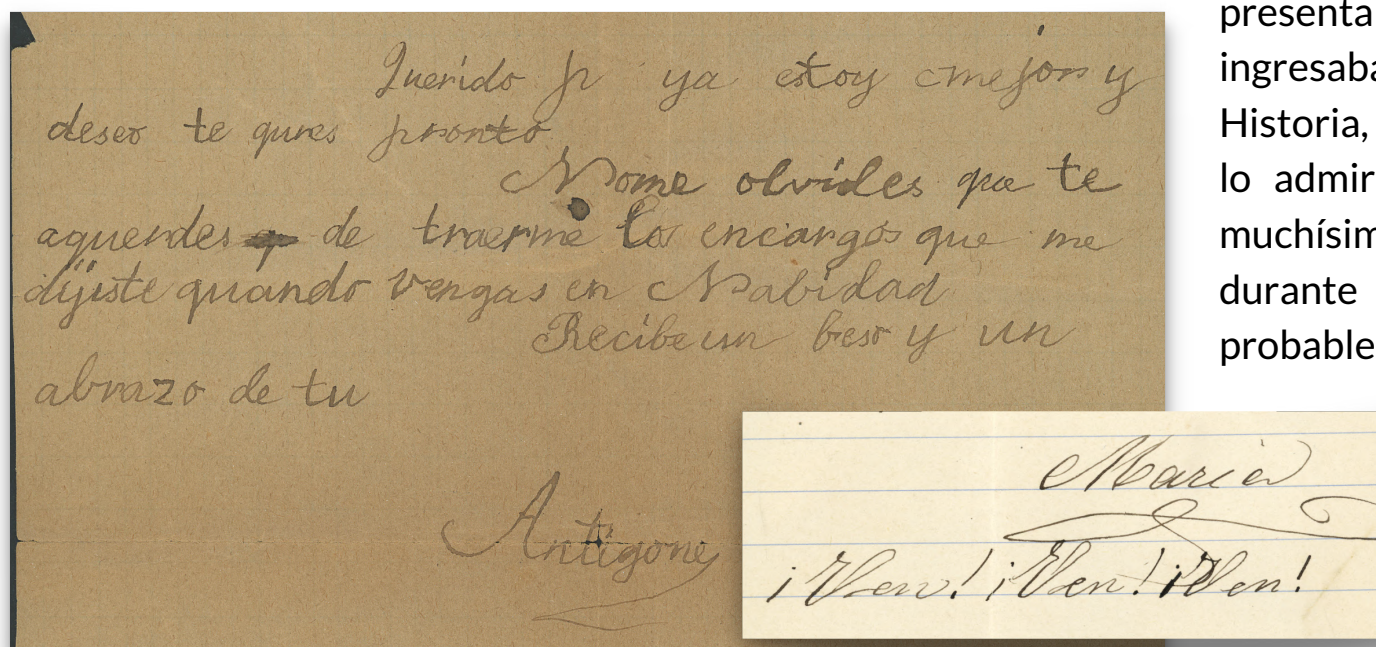 Querido p ya estoy mejor y
deseo te qures pronto
Nome olvides que te
aquerdes de traerme los encargos que me
dijiste quando vengas en Nabidad
Recibe un beso y un
abrazo de tu
Antigone
Maria
¡Ven! ¡Ven! ¡Ven!
presenta
ingresaba
Historia,
lo admir
muchísim
durante
probable